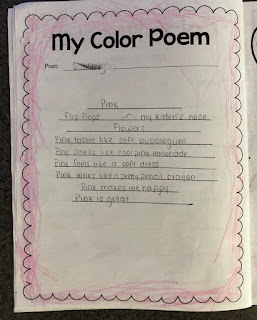 My Color Poem
Poet:
Pink
Flip flops my kitten's nose
Flowers
Pink tastes like soft bubblegum
Pink smells like cool pink lemonade
Pink feels like a soft dress
Pink looks like a pretty pencil crayon
Pink makes me happy
Pink is great